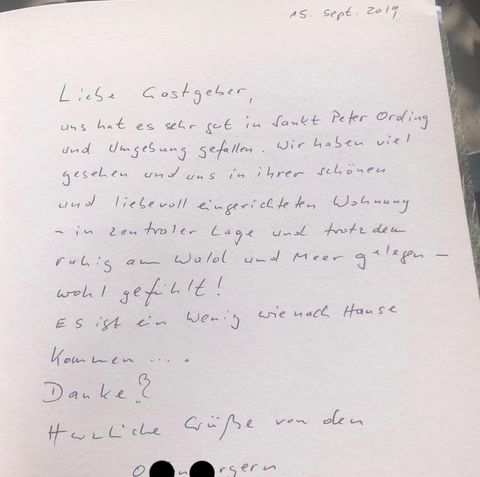 15. Sept. 2019
Liebe Gastgeber,
uns hat es sehr gut in Sankt Peter Ording
und Umgebung gefallen. Wir haben viel
gesehen und uns in ihrer schönen
und liebevoll eingerichteten Wohnung
- in zentraler Lage und trotzdem
ruhig am Wald und Meer gelegen -
wohl gefühlt!
Es ist ein wenig wie nach Hause
Kommen ....
Danke!
Herzliche Grüße von den